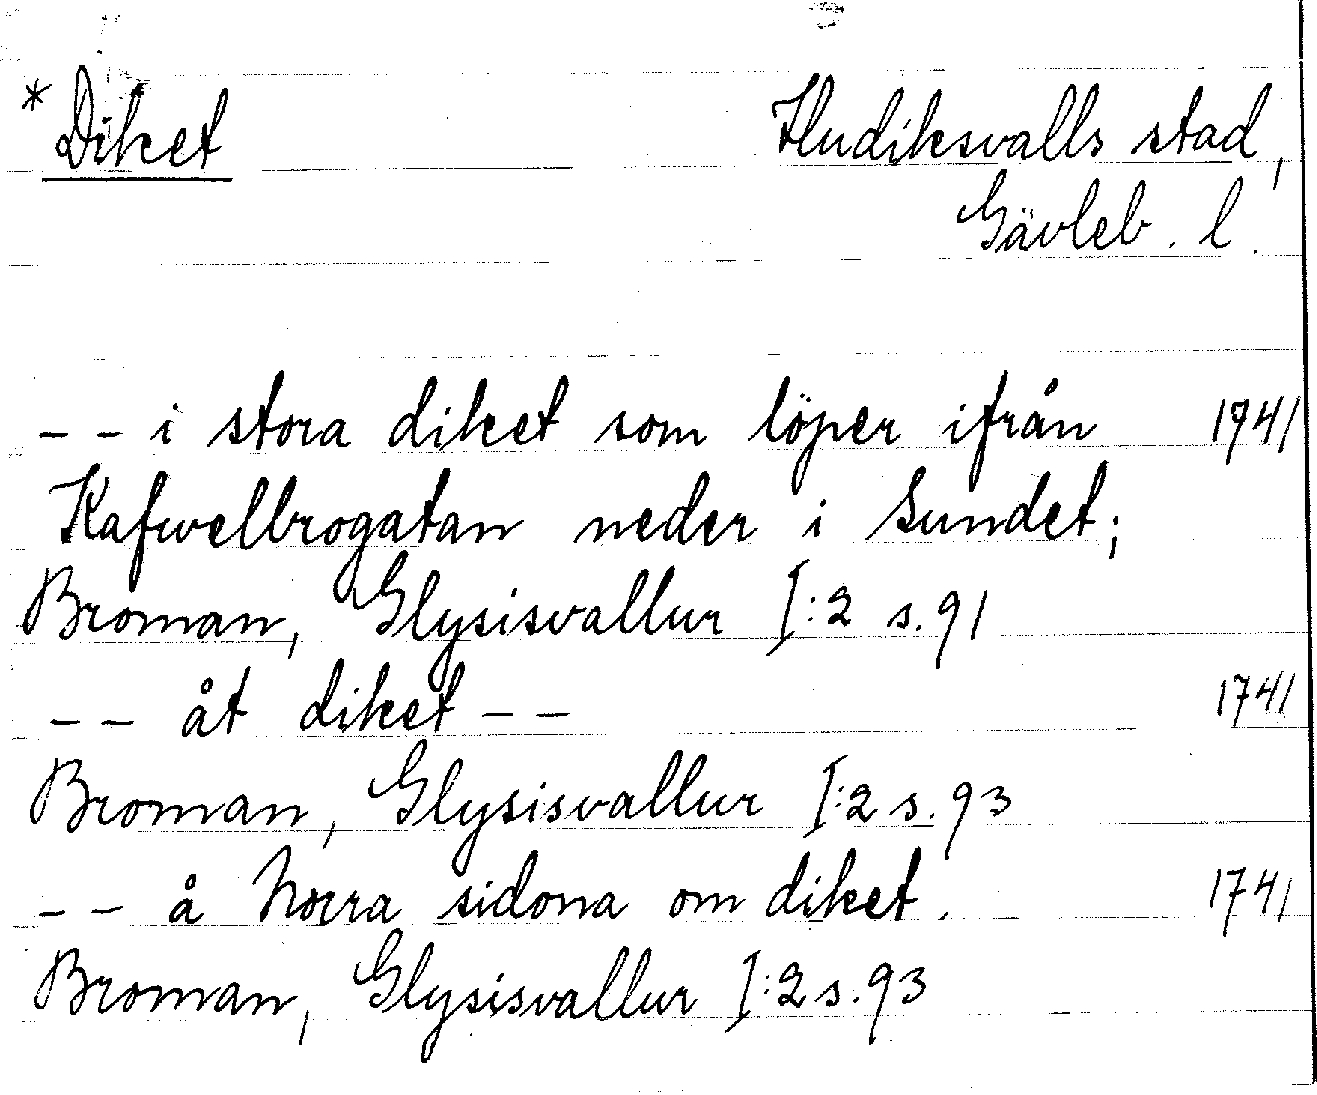 * Diket Hudiksvalls stad,
Gävleb. l.
-- i stora diket som löper ifrån 1741
Kafwelbrogatan neder i Sundet;
Broman, Glysisvallur I:2 s. 91
-- åt diket -- 1741
Broman, Glysisvallur I:2 s. 93
-- å Norra sidona om diket. 1741
Broman, Glysisvallur I:2 s. 93